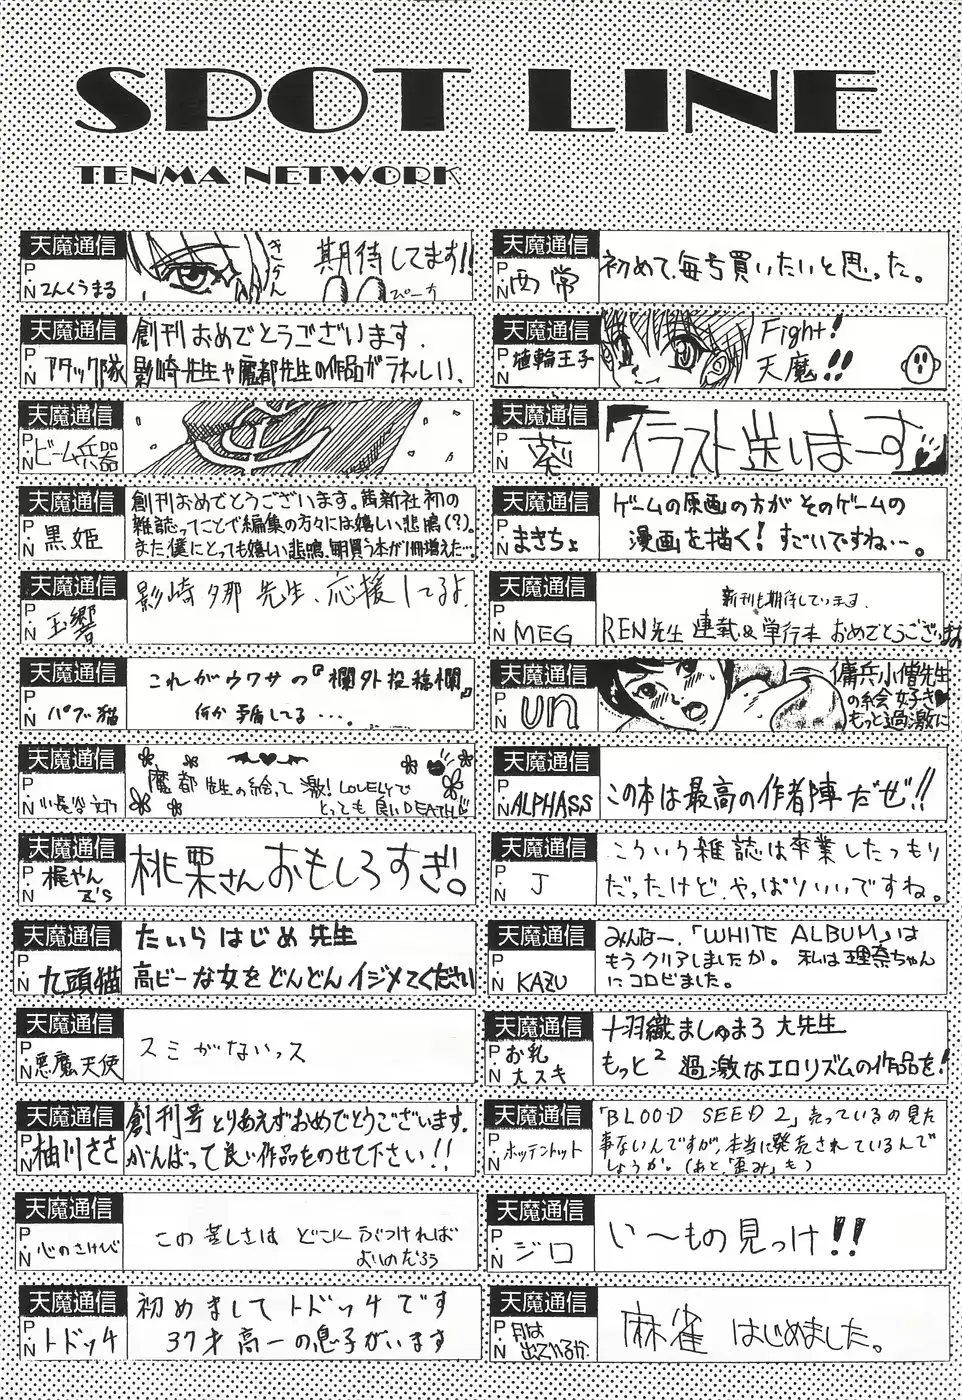 SPOT LINE
TENMA NETWORK
天魔通信
P.N てんくうまる
きかん
期待してます!!
ぴーち
天魔通信
P.N アタック隊
創刊おめでとうございます.
影崎先生や魔都先生の作品がうれしい、
天魔通信
P.N ビーム兵器
天魔通信
P.N 黒姫
創刊おめでとうございます。茜新社初の
雑誌ってことで編集の方々には嬉しい悲鳴(?)。
また僕にとっても嬉しい悲鳴、毎月買う本が1冊増えた…。
天魔通信
P.N 玉響
影崎夕那先生、応援してるよ、
天魔通信
P.N パブ猫
これがウワサの『欄外投稿欄』
何か矛盾してる・・・。
天魔通信
P.N 小長谷
魔都先生の絵って激!LOVELYで
とっても良いDEATH!
天魔通信
P.N 梶やんZ's
桃栗さんおもしろすぎ。
天魔通信
P.N 九頭猫
たいらはじめ先生
高ビーな女をどんどんイジメてください
天魔通信
P.N 悪魔天使
スミがないっス
天魔通信
P.N 柚川ささ
創刊号とりあえずおめでとうございます.
がんばって良い作品をのせて下さい!!
天魔通信
P.N 心のさけび
この苦しさは どこにぶつければ
よいのだろう
天魔通信
P.N トドッチ
初めましてトドッチです
37才高一の息子がいます
天魔通信
P.N 西常
初めて、毎号買いたいと思った。
天魔通信
P.N 埴輪王子
Fight!
天魔!!
天魔通信
P.N 葵
イラスト送りまーす
天魔通信
P.N まきちょ
ゲームの原画の方がそのゲームの
漫画を描く!すごいですね…。
天魔通信
P.N MEG
新刊も期待しています.
REN先生 連載&単行本 おめでとうございます
天魔通信
P.N un
傭兵小僧先生
の絵好き♥
もっと過激に
天魔通信
P.N ALPHASS
この本は最高の作者陣だぜ!!
天魔通信
P.N J
こういう雑誌は卒業したつもり
だったけど、やっぱりいいですね。
天魔通信
P.N KAZU
みんなー、「WHITE ALBUM」は
もうクリアしましたか。私は理奈ちゃん
にコロビました。
天魔通信
P.N お乳大スキ
十羽織ましゅまろ大先生
もっと² 過激なエロリズムの作品を!
天魔通信
P.N ホッテントット
「BLOOD SEED 2」売っているの見た
事ないんですが、本当に発売されているんで
しょうか。(あと「歪み」も)
天魔通信
P.N ジロ
い〜もの見っけ!!
天魔通信
P.N 月は出ているか
麻雀はじめました。